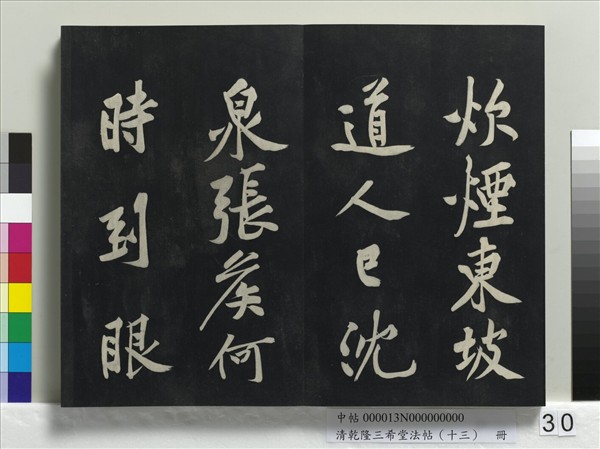 炊煙東坡
道人已沈
泉張矦何
時到眼
中帖 000013N000000000
清乾隆三希堂法帖（十三） 冊
30